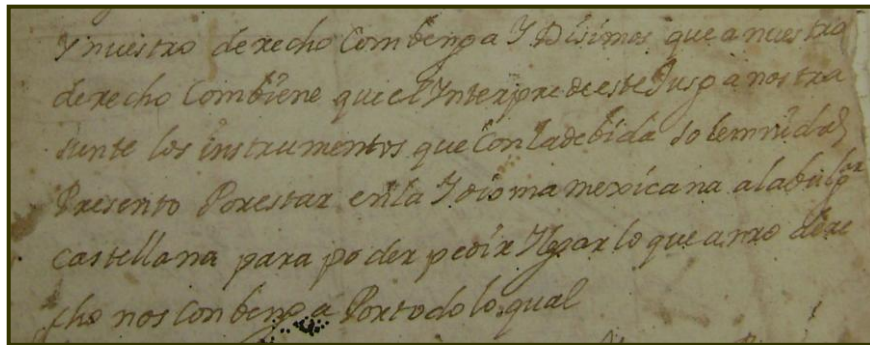 Y nuestro derecho Combenga Y Disimos que a nuestro
derecho Combiene que el Ynterpre de este Jusga nos tra
sunte los instrumentos que Con La debida solemnidad
Presento Por estar en la Ydioma mexicana a la bulgar
castellana para poder pedir Y
lo que a nro dere
cho nos Conbenga Por todo lo qual